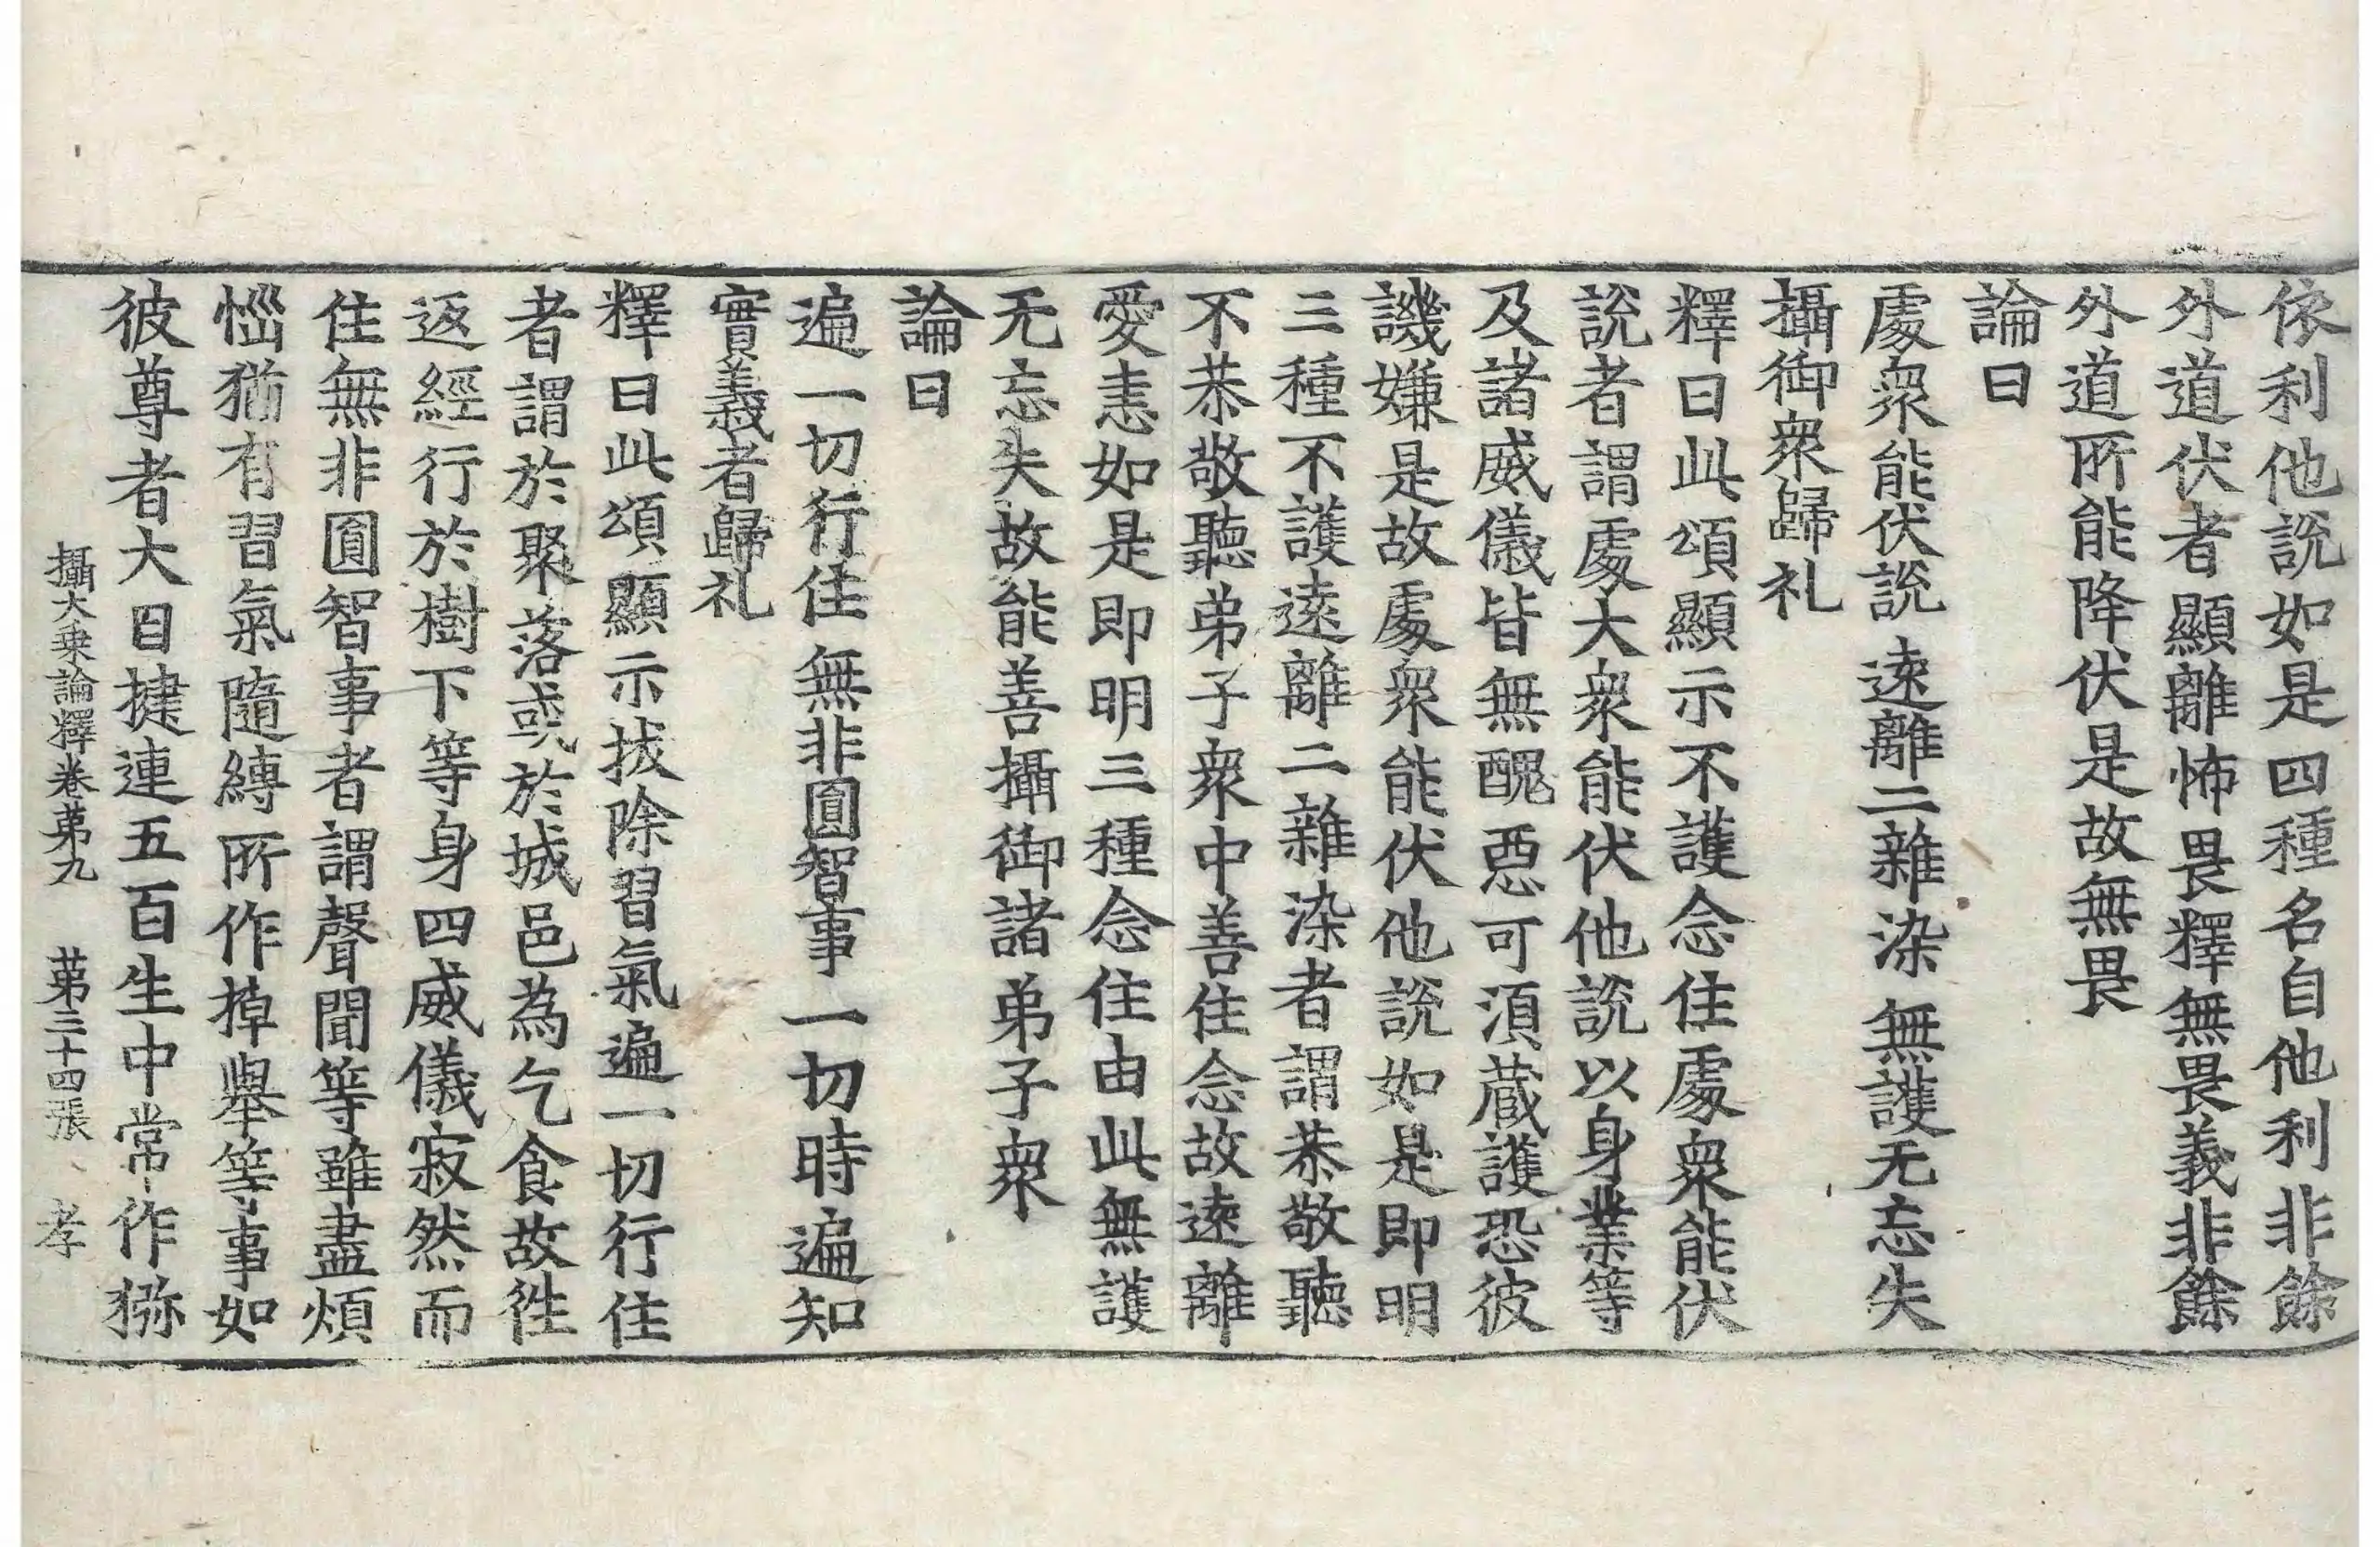 依利他說如是四種名自他利非餘
外道伏者顯離怖畏釋無畏義非餘
外道所能降伏是故無畏
論曰
處衆能伏說 遠離二雜染 無護无忘失
攝御衆歸礼
釋曰此頌顯示不護念住處衆能伏
說者謂處大衆能伏他說以身業等
及諸威儀皆無醜惡可湏蔵護恐彼
譏嫌是故處衆能伏他說如是即明
三種不護遠離二雜染者謂恭敬聽
不恭敬聽弟子衆中善住念故遠離
愛恚如是即明三種念住由此無護
无忘失故能善攝御諸弟子衆
論曰
遍一切行住 無非圓智事 一切時遍知
實義者歸礼
釋曰此頌顯示拔除習氣遍一切行住
者謂於聚落或於城邑為乞食故徃
返經行於樹下等身四威儀寂然而
住無非圓智事者謂聲聞等雖盡煩
惱猶有習氣隨縛所作掉舉等事如
彼尊者大目揵連五百生中常作猕
攝大乗論釋卷苐九 苐三十四張 孝